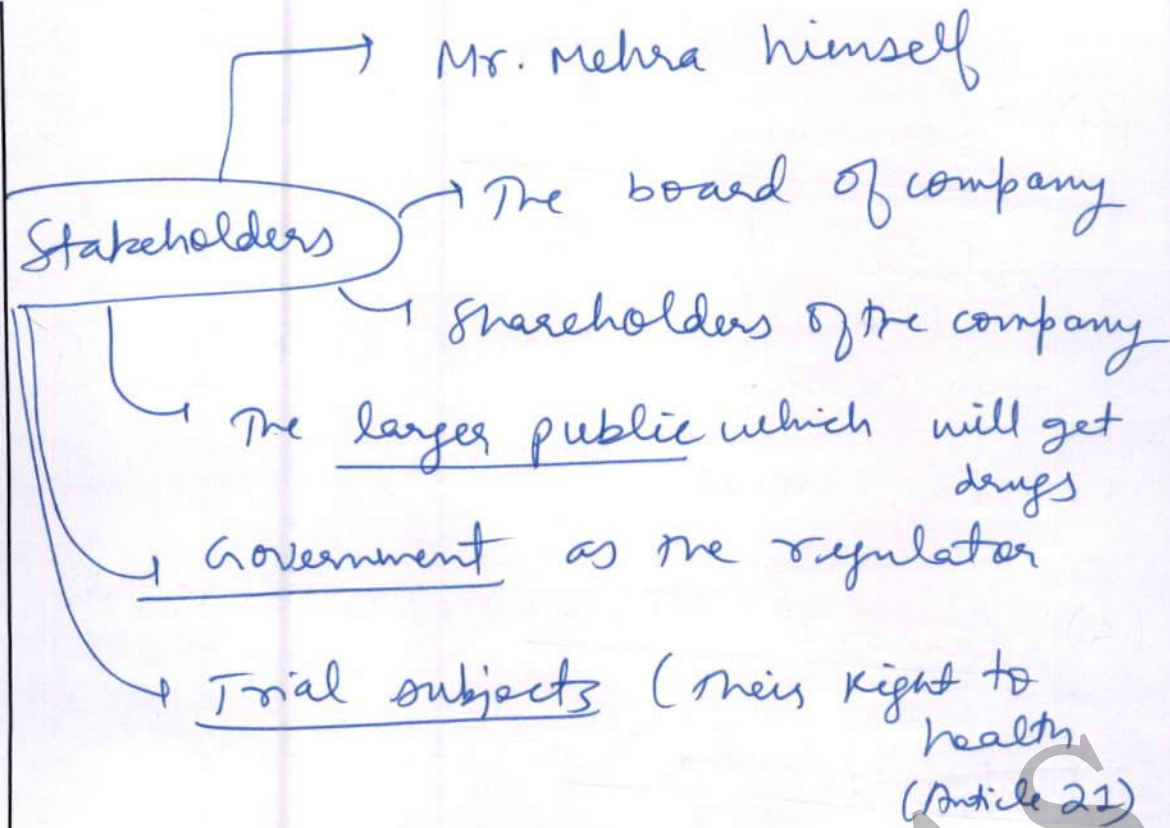 Mr. Mehra himself
Stakeholders
The board of company
Shareholders of the company
The larger public which will get
drugs
Government as the regulator
Trial subjects (their Right to
health
(Article 21)